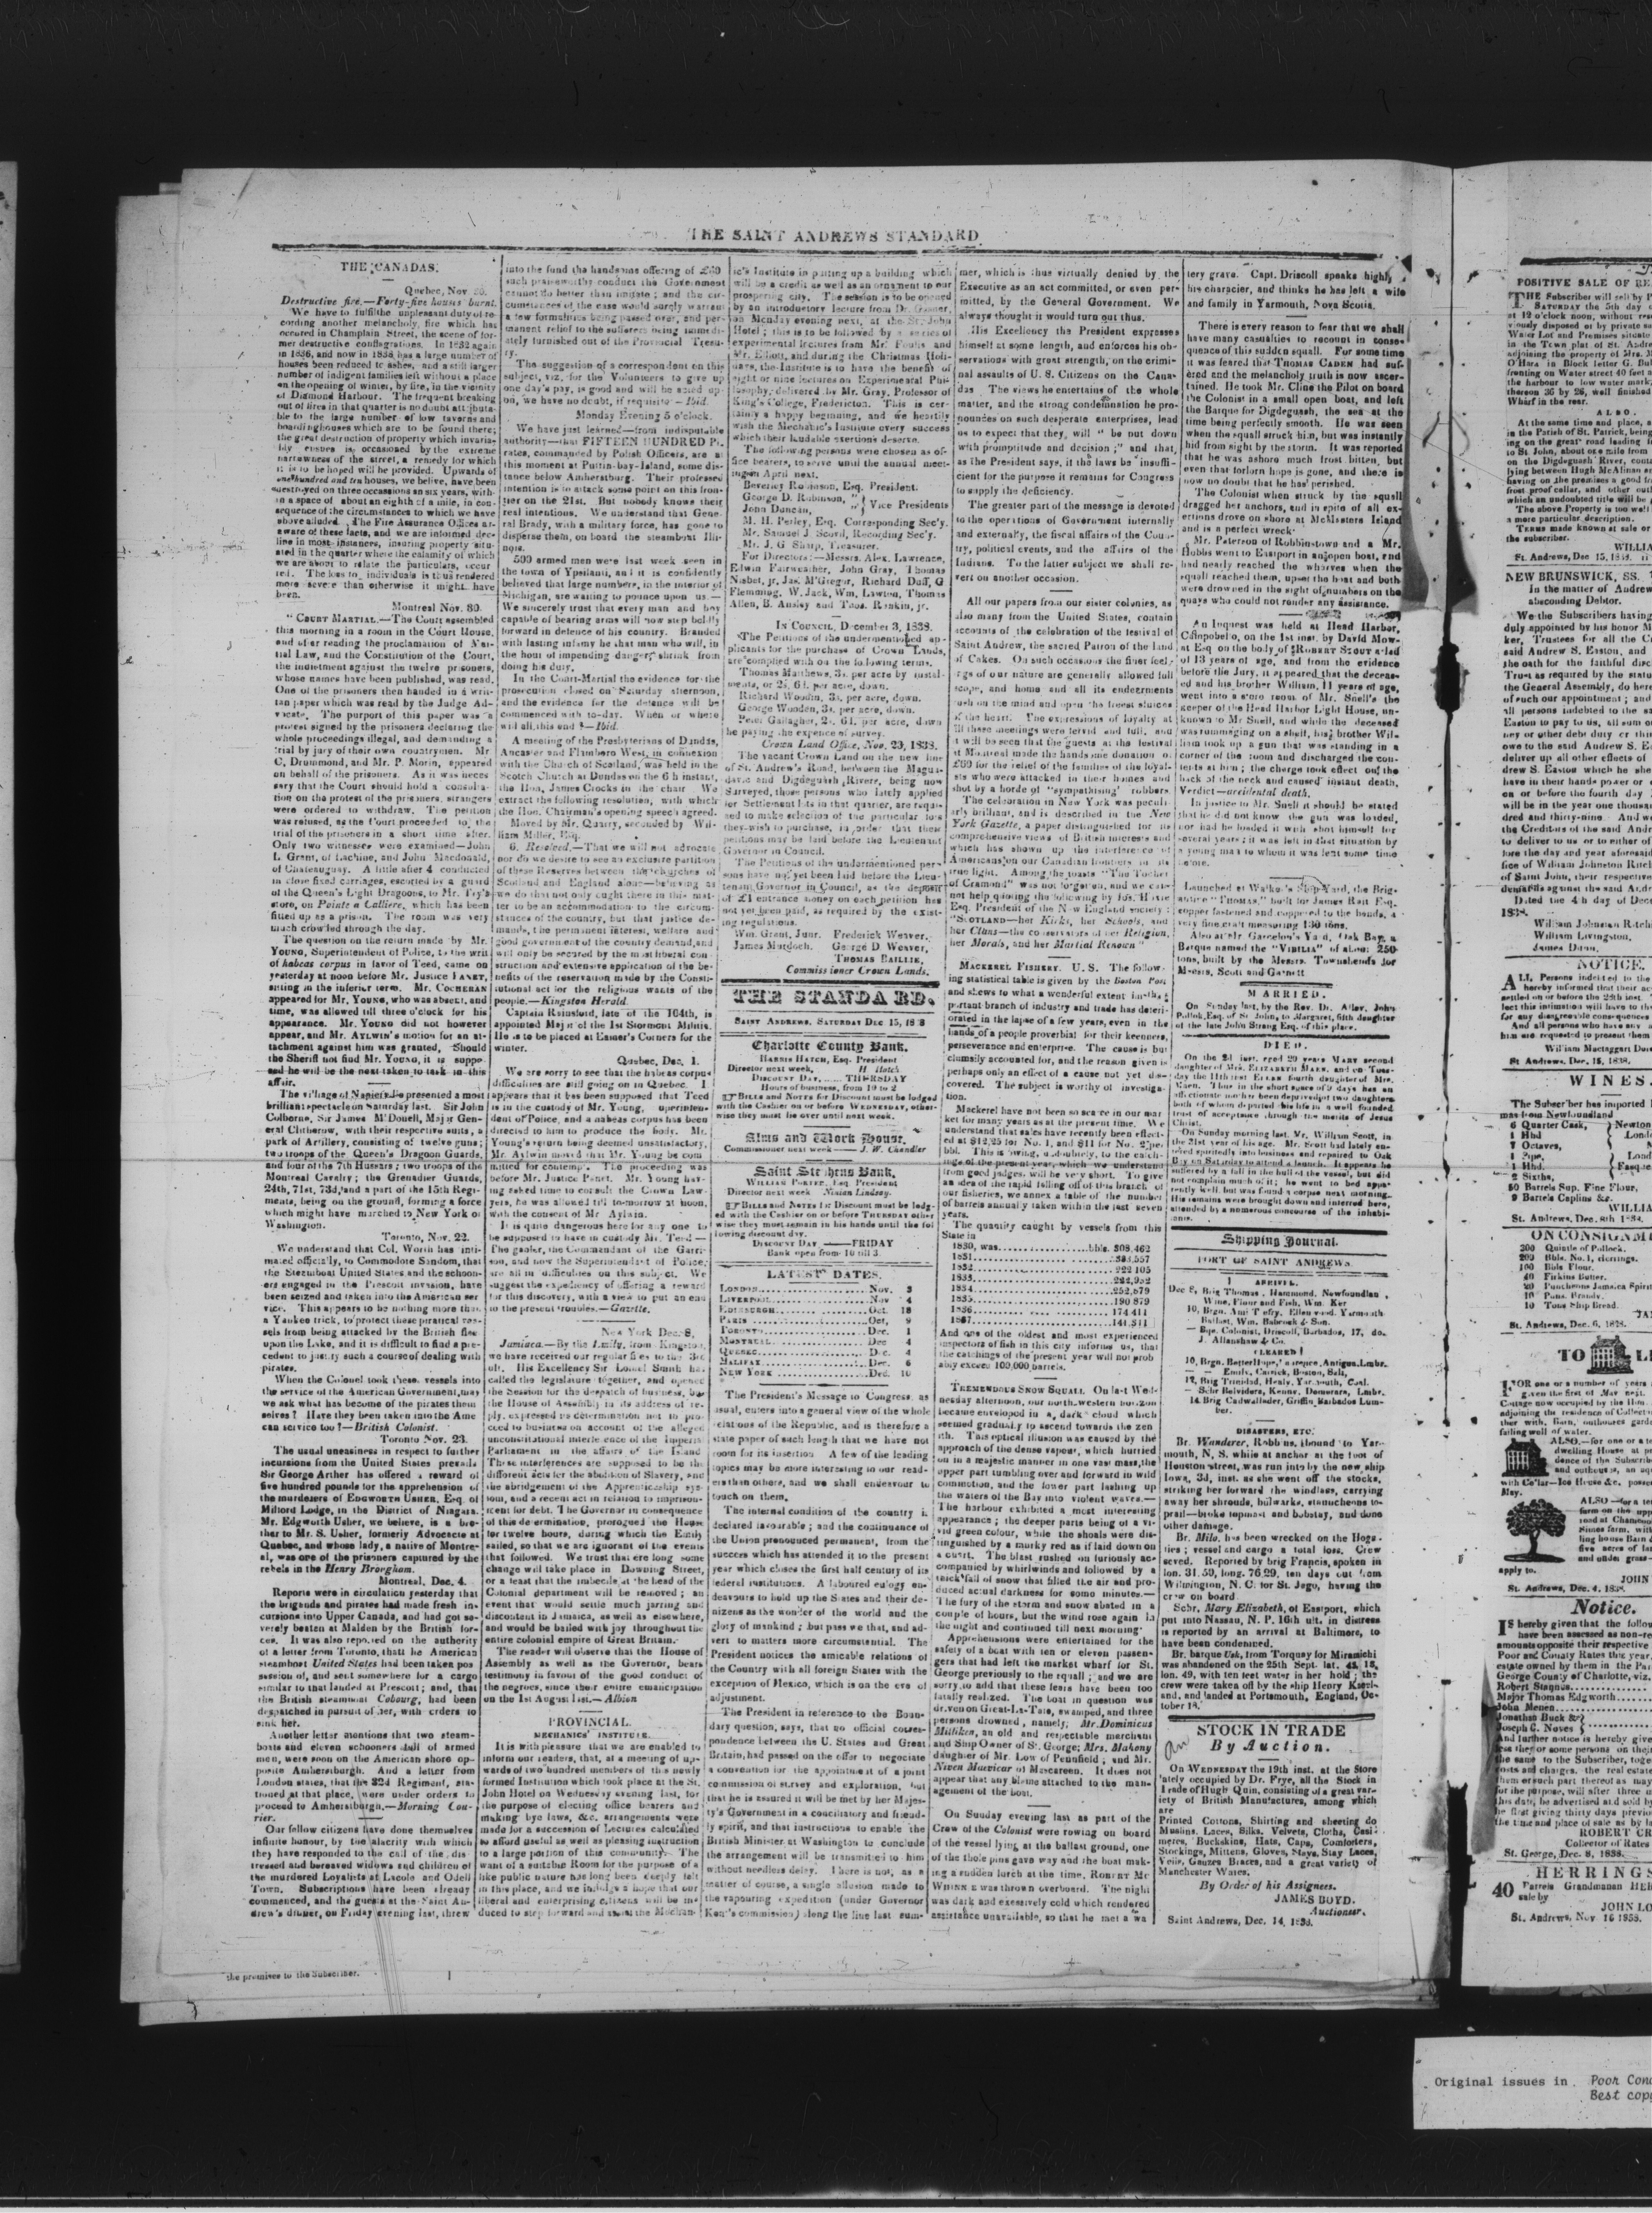 THE SAINT ANDREWS STANDARD
THE CANADAS.
Quebec, Nov.
Destructive fire.—Forty-five houses burnt.
We have to fulfil the unpleasant duty of re-
cording another melancholy fire which has
occured in Champlain Street, the scene of for-
mer destructive conflagrations. In 1832 again
in 1836, and now in 1838, has a large number of
houses been reduced to ashes, and a still larger
number of indigent families left without a place
on the opening of winter, by fire, in the vicinity
of Diamond Harbour. The frequent breaking
out of fires in that quarter is no doubt attributa-
ble to the large number of low taverns and
boarding houses which are to be found there;
the great destruction of property which invaria-
bly ensues is occasioned by the extreme
narrowness of the street, a remedy for which
it is to be hoped will be provided. Upwards of
one hundred and ten houses, we belive, have been
destroyed on three occassions in six years, with-
in a space of about an eighth of a mile, in con-
sequence of the circumstances to which we have
above alluded. The Fire Assurance Offices are
aware of these facts, and we are informed dec-
line in most instances, insuring property situ-
ated in the quarter where the calamity of which
we are about to relate the particulars, occur
red. The loss to individuals is thus rendered
more severe than otherwise it might have
been.
Montreal Nov. 30.
"COURT MARTIAL.—The Court assembled
this morning in a room in the Court House,
and after reading the proclamation of Mar-
tial Law, and the Constitution of the Court,
the indictment against the twelve prisoners,
whose names have been published, was read.
One of the prisoners then handed in a writ-
tan paper which was read by the Judge Ad-
vocate. The purport of this paper was a
protest signed by the prisoners declaring the
whole proceedings illegal, and demanding a
trial by jury of their own countrymen. Mr
C, Drummond, and Mr. P. Morin, appeared
on behalf of the prisoners. As it was neces
sary that the Court should hold a consulta-
tion on the protest of the prisoners, strangers
were ordered to withdraw. The petition
was refused, as the Court proceeded to the
trial of the prisoners in a short time after.
Only two witnesses were examined—John
L. Grant, of Lachine, and John Macdonald,
of Chateauguay. A little after 4 conducted
in close fixed carriages, escorted by a guard
of the Queen's Light Dragoons, to Mr. Fry's
store, on Pointe a Calliere, which has been
fitted up as a prison. The room was very
much crowded through the day.
The question on the return made by Mr.
YOUNG, Superintendent of Police, to the writ
of habeas corpus in favor of Teed, came on
yesterday at noon before Mr. Justice PANET,
sitting in the inferior term. Mr. COCHERAN
appeared for Mr. YOUNG, who was absent, and
time, was allowed till three o'clock for his
appearance. Mr. YOUNG did not however
appear, and Mr. AYLWIN's motion for an at-
tachment against him was granted, Should
the Sheriff not find Mr. YOUNG, it is suppo-
sed he will be the next taken to task in this
affair.
The village of Napierville presented a most
brilliant spectacle on Saturday last. Sir John
Colborne, Sir James M'Donell, Major Gen-
eral Clitherow, with their respective suits, a
park of Artillery, consisting of twelve guns;
two troops of the Queen's Dragoon Guards,
and four of the 7th Hussars; two troops of the
Montreal Cavalry; the Grenadier Guards,
24th, 71st, 73d, and a part of the 15th Regi-
ments, being on the ground, forming a force
which might have marched to New York or
Washington.
Toronto, Nov. 22.
We understand that Col. Worth has inti-
mated officially, to Commodore Sandom, that
the Steamboat United States and the schoon-
ers engaged in the Prescott invasion, have
been seized and taken into the American ser
vice. This appears to be nothing more than
a Yankee trick, to protect these piratical ves-
sels from being attacked by the British flag
upon the Lake, and it is difficult to find a pre-
cedent to justify such a course of dealing with
pirates.
When the Colonel took these vessels into
the service of the American Government, may
we ask what has become of the pirates them
selves? Have they been taken into the Ame
can service too?—British Colonist.
Toronto Nov. 23.
The usual uneasiness in respect to further
incursions from the United States prevails
Sir George Arther has offered a reward of
five hundred pounds for the apprehension of
the murderers of EDGWORTH USHER, Esq. of
Milford Lodge, in the District of Niagara.
Mr. Edgworth Usher, we believe, is a bro-
ther to Mr. S. Usher, formerly Advocate at
Quebec, and whose lady, a native of Montre-
al, was one of the prisoners captured by the
rebels in the Henry Brorgham.
Montreal, Dec. 4.
Reports were in circulation yesterday that
the brigands and pirates had made fresh in-
cursions into Upper Canada, and had got se-
verely beaten at Malden by the British for-
ces. It was also reported on the authority
of a letter from Toronto, that the American
steamboat United States had been taken pos
session of, and sent somewhere for a cargo
similar to that landed at Prescott; and, that
the British steamboat Cobourg, had been
despatched in pursuit of her, with orders to
sink her.
Another letter mentions that two steam-
boats and eleven schooners full of armed
men, were seen on the American shore op-
posite Amherstburgh. And a letter from
London states, that the 32d Regiment, sta-
tioned at that place, were under orders to
proceed to Amherstburgh.—Morning Cou-
rier.
Our fellow citizens have done themselves
infinite honour, by the alacrity with which
they have responded to the call of the dis-
tressed and bereaved widows and children of
the murdered Loyalists at Lacole and Odell
Town. Subscriptions have been already
commenced, and the guests at the Saint An-
drew's dinner, on Friday evening last, threw
into the fund the handsome offering of £60
such praiseworthy conduct the Government
cannot do better than imitate; and the cir-
cumstances of the case would surely warrant
a few formalities being passed over, and per-
manent relief to the sufferers being immedi-
ately furnished out of the Provincial Treasu-
ry.
The suggestion of a correspondent on this
subject, viz, for the Volunteers to give up
one day's pay, is good and will be acted up-
on, we have no doubt, if requisite—Ibid.
Monday Evening 5 o'clock.
We have just learned—from indisputable
authority—that FIFTEEN HUNDRED Pi-
rates, commanded by Polish Officers, are at
this moment at Puttin-bay-Island, some dis-
tance below Amherstburg. Their professed
intention is to attack some point on this fron-
tier on the 21st. But nobody knows their
real intentions. We understand that Gene-
ral Brady, with a military force, has gone to
disperse them, on board the steamboat Illi-
nois.
500 armed men were last week seen in
the town of Ypsilanti, and it is confidently
believed that large numbers, in the interior of
Michigan, are waiting to pounce upon us.—
We sincerely trust that every man and boy
capable of bearing arms will now step boldly
forward in defence of his country. Branded
with lasting infamy be that man who will, in
the hour of impending danger, shrink from
doing his duty.
In the Court-Martial the evidence for the
prosecution closed on Saturday afternoon,
and the evidence for the defence will be
commenced with to-day. When or where
will all this end?—Ibid.
A meeting of the Presbyterians of Dundas,
Ancaster and Flamboro West, in connexion
with the Church of Scotland, was held in the
Scotch Church at Dundas on the 6th instant,
the Hon, James Crooks in the chair We
extract the following resolution, with which
the Hon. Chairman's opening speech agreed.
Moved by Mr. Quarry, seconded by Wil-
liam Miller, Esq.
6. Resolved.—That we will not advocate
nor do we desire to see an exclusive partition
of these Reserves between the churches of
Scotland and England alone—believing as
we do that not only ought there in this mat-
ter to be an accommodation to the circum-
stances of the country, but that justice de-
mands, the permanent interest, welfare and
good government of the country demand, and
will only be secured by the most liberal con-
struction and extensive application of the be-
nefits of the reservation made by the Consti-
tutional act for the religious wants of the
people.—Kingston Herald.
Captain Rainsford, late of the 104th, is
appointed Major of the 1st Stormont Militia.
He is to be placed at Esmor's Corners for the
winter.
Quebec, Dec. 1.
We are sorry to see that the habeas corpus
difficulties are still going on in Quebec. I
appears that it has been supposed that Teed
is in the custody of Mr. Young, uperinten-
dent of Police, and a habeas corpus has been
directed to him to produce the body. Mr.
Young's return being deemed unsatisfactory,
Mr. Aylwin moved that Mr. Young be com
mitted for contempt. The proceeding was
before Mr. Justice Panet. Mr. Young hav-
ing asked time to consult the Crown Law-
yers, he was allowed till tomorrow at noon,
with the consent of Mr Aylwin.
It is quite dangerous here for any one to
be supposed to have in custody Mr. Teed—
The gaoler, the Commandant of the Garri-
son, and now the Superintendent of Police,
are all in difficulties on this subject. We
suggest the expediency of offering a reward
for this discovery, with a view to put an end
to the present troubles.—Gazette.
New York Dec. 8,
Jamiaca.—By the Emily, from Kingston,
we have received our regular files to the 3d
ult. His Excellency Sir Lionel Smith has
called the legislature together, and opened
the Session for the despatch of business, but
the House of Assembly in its address of re-
ply, expressed its determination not to pro-
ceed to business on account of the alleged
unconstitutional interference of the Imperial
Parliament in the affairs of the Island
These interferences are supposed to be the
different acts for the abolition of Slavery, and
the abridgement of the Apprenticeship sys-
tom, and a recent act in relation to imprison-
ment for debt. The Governor in consequence
of this determination, prorogued the House
for twelve hours, during which the Emily
sailed, so that we are ignorant of the events
that followed. We trust that ere long some
change will take place in Downing Street,
or a least that the imbecile at the head of the
Colonial department will be removed; an
event that would settle much jarring and
discontent in Jamaica, as well as elsewhere,
and would be hailed with joy throughout the
entire colonial empire of Great Britain.
The reader will observe that the House of
Assembly as well as the Governor, bears
testimony in favour of the good conduct of
the negroes, since their entire emancipation
on the 1st August last.—Albion
PROVINCIAL.
MECHANICS' INSTITUTE.
It is with pleasure that we are enabled to
inform our readers, that, at a meeting of up-
wards of two hundred members of this newly
formed Institution which took place at the St.
John Hotel on Wednesday evening last, for
the purpose of electing office bearers and
making bye laws, &c, arrangements were
made for a succession of Lectures calculated
to afford useful as well as pleasing instruction
to a large portion of this community. The
want of a suitable Room for the purpose of a
like public nature has long been deeply felt
in this place, and we indulge a hope that our
liberal and enterprising citizens will be in-
duced to step forward and assist the Mechan-
ic's Institute in putting up a building which
will be a credit as well as an ornament to our
prospering city. The session is to be opened
by an introductory lecture from Dr. Gesner,
on Monday evening next, at the St. John
Hotel; this is to be followed by a series of
experimental lectures from Mr. Foulis and
Mr. Elliott, and during the Christmas Holi-
days, the Institute is to have the benefit of
eight or nine lectures on Experimental Phi-
losophy, delivered by Mr. Gray, Professor of
King's College, Fredericton. This is cer-
tainly a happy beginning, and we heartily
wish the Mechanic's Institute every success
which their laudable exertions deserve.
The following persons were chosen as of-
fice bearers, to serve until the annual meet-
ing in April next.
Beverley Robinson, Esq. President.
George D. Robinson, "
John Duncan, " } Vice Presidents
M. H. Perley, Esq. Corresponding Sec'y.
Mr. Samuel J. Scovil, Recording Sec'y.
Mr. J. G Sharp, Treasurer.
For Directors:—Messrs. Alex. Lawrence,
Edwin Fairweather, John Gray, Thomas
Nisbet, jr, Jas. M'Gregor, Richard Duff, G
Flemming, W. Jack, Wm, Lawton, Thomas
Allen, B. Ansley and Thos. Rankin, jr.
IN COUNCIL, December 3, 1838.
The Petitions of the undermentioned ap-
plicants for the purchase of Crown Lands,
are complied with on the following terms.
Thomas Matthews, 3s. per acre by instal-
ments, or 2s. 6d. per acre, down.
Richard Woodin, 3s. per acre, down.
George Wooden, 3s. per acre, down.
Peter Gallagher, 2s. 6d. per acre, down
he paying the expence of survey.
Crown Land Office, Nov. 29, 1838.
The vacant Crown Land on the new line
of St. Andrew's Road, between the Magua-
davic and Digdeguash Rivers, being now
Surveyed, those persons who lately applied
for Settlement lots in that quarter, are requi-
red to make selection of the particular lots
they wish to purchase, in order that their
petitions may be laid before the Lieutenant
Governor in Council.
The Petitions of the undermentioned per-
sons have not yet been laid before the Lieu-
tenant Governor in Council, as the deposit
of £1 entrance money on each petition has
not yet been paid, as required by the exist-
ing regulations.
Wm. Grant, Junr. Frederick Weaver,
James Murdoch. George D. Weaver,
THOMAS BAILLIE,
Commissioner Crown Lands.
THE STANDARD.
SAINT ANDREWS, SATURDAY DEC 15, 1838
Charlotte County Bank.
HARRIS HATCH, Esq. President
Director next week, H Hatch
DISCOUNT DAY, ...... THURSDAY
Hours of business, from 10 to 2
BILLS and NOTES for Discount must be lodged
with the Cashier on or before WEDNESDAY, other-
wise they must lie over until next week.
Alms and Work House.
Commissioner next week—— J. W. Chandler
Saint Stephens Bank.
WILLIAM PORTER, Esq President
Director next week Ninian Lindsay.
BILLS and NOTES for Discount must be lodg-
ed with the Cashier on or before THURSDAY other
wise they must remain in his hands until the fol
lowing discount day.
DISCOUNT DAY ——FRIDAY
Bank open from 10 till 3
LATEST DATES.
LONDON............Nov. 3
LIVERPOOL............Nov 4
EDINBURGH............Oct. 18
PARIS............Oct, 9
TORONTO............Dec. 1
MONTREAL............Dec 4
QUEBEC............Dec. 4
HALIFAX............Dec. 6
NEW YORK............Dec. 10
The President's Message to Congress, as
usual, enters into a general view of the whole
relations of the Republic, and is therefore a
state paper of such length that we have not
room for its insertion. A few of the leading
topics may be more interesting to our read-
ers than others, and we shall endeavour to
touch on them.
The internal condition of the country is
declared favourable; and the continuance of
the Union pronounced permanent, from the
success which has attended it to the present
year which closes the first half century of its
federal institutions. A laboured eulogy en-
deavours to hold up the States and their de-
nizens as the wonder of the world and the
glory of mankind; but pass we that, and ad-
vert to matters more circumstantial. The
President notices the amicable relations of
the Country with all foreign States with the
exception of Mexico, which is on the eve of
adjustment.
The President in reference to the Boun-
dary question, says, that no official corres-
pondence between the U. States and Great
Britain, had passed on the offer to negociate
a convention for the appointment of a joint
commission of survey and exploration, but
that he is assured it will be met by her Majes-
ty's Government in a conciliatory and friend-
ly spirit, and that instructions to enable the
British Minister at Washington to conclude
the arrangement will be transmitted to him
without needless delay. There is not, as a
matter of course, a single allusion made to
the vapouring expedition (under Governor
Kent's commission) along the line last sum-
mer, which is thus virtually denied by the
Executive as an act committed, or even per-
mitted, by the General Government. We
always thought it would turn out thus.
His Excellency the President expresses
himself at some length, and enforces his ob-
servations with great strength, on the crimi-
nal assaults of U. S. Citizens on the Cana-
das The views he entertains of the whole
matter, and the strong condemnation he pro-
nounces on such desperate enterprises, lead
us to expect that they, will "be put down
with promptitude and decision;" and that,
as the President says, if the laws be insuffi-
cient for the purpose it remains for Congress
to supply the deficiency.
The greater part of the message is devoted
to the operations of Government internally
and externally, the fiscal affairs of the Coun-
try, political events, and the affairs of the
Indians. To the latter subject we shall re-
vert on another occasion.
All our papers from our sister colonies, as
also many from the United States, contain
accounts of the celebration of the festival of
Saint Andrew, the sacred Patron of the land
of Cakes. On such occasions the finer feel-
ings of our nature are generally allowed full
scope, and home and all its endearments
rush on the mind and open the freest sluices
of the heart. The expressions of loyalty at
all these meetings were fervid and full, and
it will be seen that the guests at the festival
at Montreal made the handsome donation of
£60 for the relief of the families of the loyal-
sts who were attacked in their homes and
shot by a horde of "sympathising" robbers.
The celebration in New York was pecul-
arly brilliant, and is described in the New
York Gazette, a paper distinguished for its
comprehensive views of British interests and
which has shown up the interference of
Americans on our Canadian frontiers in its
true light. Among the toasts "The Tocher
of Cramond" was not forgotten, and we can-
not help quoting the following by Jos. Hoxie
Esq. President of the New England society:
"SCOTLAND—her Kirks, her Schools, and
her Clans—the conservators of her Religion,
her Morals, and her Martial Renown"
MACKEREL FISHERY. U. S. The follow-
ing statistical table is given by the Boston Post
and shews to what a wonderful extent in this
portant branch of industry and trade has deteri-
orated in the lapse of a few years, even in the
hands of a people proverbial for their keenness,
perseverance and enterprise. The cause is but
clumsily accounted for, and the reason given is
perhaps only an effect of a cause not yet dis-
covered. The subject is worthy of investiga-
tion.
Mackerel have not been so scarce in our mar
ket for many years as at the present time. We
understand that sales have recently been effect-
ed at $12,25 for No. 1, and $11 for No. 2 per
bbl. This is owing, undoubtedly, to the catch-
ings of the present year, which we understand
from good judges, will be very short. To give
an idea of the rapid falling off of this branch of
our fisheries, we annex a table of the number
of barrels annualy taken within the last seven
years.
The quantity caught by vessels from this
State in
1830, was............bbls. 308,462
1831............383,557
1832............222 105
1833............222,932
1834............252,879
1835............190 879
1836............174 411
1837............141,311
And one of the oldest and most experienced
inspectors of fish in this city informs us, that
the catchings of the present year will not prob
ably exceed 100,000 barrels.
TREMENDOUS SNOW SQUALL On last Wed-
nesday afternoon, our north-western horizon
became enveloped in a dark cloud which
seemed gradually to ascend towards the zen
ith. This optical illusion was caused by the
approach of the dense vapour, which hurried
on in a majestic manner in one vast mass, the
upper part tumbling over and forward in wild
commotion, and the lower part lashing up
the waters of the Bay into violent waves.—
The harbour exhibited a most interesting
appearance; the deeper parts being of a vi-
vid green colour, while the shoals were dis-
tinguished by a murky red as if laid down on
a chart. The blast rushed on furiously ac-
companied by whirlwinds and followed by a
thick fall of snow that filled the air and pro-
duced actual darkness for some minutes.—
The fury of the storm and snow abated in a
couple of hours, but the wind rose again in
the night and continued till next morning.
Apprehensions were entertained for the
safety of a boat with ten or eleven passen-
gers that had left the market wharf for St.
George previously to the squall; and we are
sorry to add that these fears have been too
fatally realized. The boat in question was
driven on Great-Le-Tate, swamped, and three
persons drowned, namely; Mr. Dominicus
Milliken, an old and respectable merchant
and Ship Owner of St. George; Mrs. Mahony
daughter of Mr. Low of Pennfield; and Mr.
Niven Macvicar of Mascareen. It does not
appear that any blame attached to the man-
agement of the boat.
On Sunday evening last as part of the
Crew of the Colonist were rowing on board
of the vessel lying at the ballast ground, one
of the thole pins gave way and the boat mak-
ing a sudden lurch at the time, ROBERT Mc
was thrown overboard. The night
was dark and excessively cold which rendered
assistance unavailable, so that he met a wa
tery grave. Capt. Driscoll speaks highly
his character, and thinks he has left a wife
and family in Yarmouth, Nova Scotia.
There is every reason to fear that we shall
have many casualties to recount in conse-
quence of this sudden squall. For some time
it was feared that THOMAS CADEN had suf-
fered and the melancholy truth is now ascer-
tained. He took Mr. Cline the Pilot on board
the Colonist in a small open boat, and left
the Barque for Digdeguash, the sea at the
time being perfectly smooth. He was seen
when the squall struck him, but was instantly
hid from sight by the storm. It was reported
that he was ashore much frost bitten, but
even that forlorn hope is gone, and there is
now no doubt that he has perished.
The Colonist when struck by the squall
dragged her anchors, and in spite of all ex-
ertions drove on shore at McMasters Island
and is a perfect wreck.
Mr. Paterson of Robbinstown and a Mr.
Hobbs went to Eastport in an open boat, and
had nearly reached the wharves when the
squall reached them, upset the boat and both
were drowned in the sight of numbers on the
quays who could not render any assistance.
An Inquest was held at Head Harbor,
Campobello, on the 1st inst. by David Mow-
at Esq on the body of ROBERT SCOUT a lad
of 13 years of age, and from the evidence
before the Jury, it appeared that the deceas-
ed and his brother William, 11 years of age,
went into a store room of Mr. Snell's the
keeper of the Head Harbor Light House, un-
known to Mr Snell, and while the deceased
was rummaging on a shelf, his brother Wil-
liam took up a gun that was standing in a
corner of the room and discharged the con-
tents at him; the charge took effect on the
back of the neck and caused instant death.
Verdict—accidental death.
In justice to Mr. Snell it should be stated
that he did not know the gun was loaded,
nor had he loaded it with shot himself for
several years; it was left in that situation by
a young man to whom it was lent some time
before.
Launched at Walko's Ship Yard, the Brig-
antine "THOMAS," built for James Rait Esq.
copper fastened and coppered to the bends, a
very fine craft measuring 130 tons,
Also at Mr Garcelon's Yard, Oak Bay, a
Barque named the "VIBILIA" of about 250
tons, built by the Messrs. Townshends for
Messrs, Scott and Garnett
MARRIED.
On Sunday last, by the Rev. Dr. Alley, John
Pollok, Esq. of St John, to Margaret, fifth daughter
of the late John Strang Esq. of this place.
DIED.
On the 2d inst. aged 20 years MARY second
daughter of Mrs. ELIZABETH MAEN, and on Tues-
day the 11th inst ELLEN fourth daughter of Mrs.
Maen. Thus in the short space of 9 days has an
affectionate mother been deprived of two daughters
both of whom departed this life in a well founded
trust of acceptance through the merits of Jesus
Christ.
On Sunday morning last, Mr. William Scott, in
the 31st year of his age. Mr. Scott had lately en-
tered spiritedly into business and repaired to Oak
Bay on Saturday to attend a launch. It appears he
suffered by a fall in the hull of the vessel, but did
not complain much of it; he went to bed appa-
rently well, but was found a corpse next morning.
His remains were brought down and interred here,
attended by a numerous concourse of the inhabi-
tants.
Shipping Journal.
PORT OF SAINT ANDREWS.
ARRIVED,
Dec 8, Brig Thomas, Hammond, Newfoundland,
Wine, Flour and Fish, Wm. Ker
10, Brgn. Amity, Ellenwood, Yarmouth
Ballast, Wm. Babcock & Son.
— Bqe. Colonist, Driscoll, Barbados, 17, do.
J. Allanshaw & Co.
CLEARED
10, Brgn. Better Hope, Antigua, Lmbr.
— Emily, Carrick, Boston, Salt,
12, Brig Trinidad, Healy, Yarmouth, Coal.
— Schr Belvidera, Kenny, Demerara, Lmbr.
14. Brig Cadwallader, Griffin, Barbados Lum-
ber.
DISASTERS, ETC.
Br. Wanderer, Robbins, (bound to Yar-
mouth, N. S. while at anchor at the foot of
Houston street, was run into by the new ship
Iowa, 3d, inst. as she went off the stocks,
striking her forward the windlass, carrying
away her shrouds, bulwarks, stanncheons to-
prail—broke topmast and bobstay, and done
other damage.
Br. Milo, has been wrecked on the Hogs-
ties; vessel and cargo a total loss. Crew
seved. Reported by brig Francis, spoken in
lon. 31.50, long. 76 29, ten days out from
Wilmington, N. C. for St. Jago, having the
crew on board
Schr, Mary Elizabeth, of Eastport, which
put into Nassau, N. P. 16th ult. in distress
is reported by an arrival at Baltimore, to
have been condemned.
Br. barque Usk, from Torquay for Miramichi
was abandoned on the 25th Sept. lat. 43, 15,
lon. 49, with ten feet water in her hold; the
crew were taken off by the ship Henry Kneel-
and, and landed at Portsmouth, England, Oc-
tober 18.
STOCK IN TRADE
By Auction.
On WEDNESDAY the 19th inst. at the Store
lately occupied by Dr. Frye, all the Stock in
Trade of Hugh Quin, consisting of a great var-
iety of British Manufactures, among which
are
Printed Cottons, Shirting and sheeting do
Muslins, Laces, Silks, Velvets, Cloths, Cassi-
meres, Buckskins, Hats, Caps, Comforters,
Stockings, Mittens, Gloves, Stays, Stay Laces,
Veils, Gauzes Braces, and a great variety of
Manchester Wares.
By Order of his Assignees.
JAMES BOYD.
Auctioneer.
Saint Andrews, Dec. 14, 1838.
the premises to the Subscriber.
POSITIVE SALE OF RE
THE Subscriber will sell by P
SATURDAY the 5th day
at 12 o'clock noon, without res
viously disposed of by private sa
Water Lot and Premises situate
in the Town plat of St. Andre
adjoining the property of Mrs.
O'Hara in Block letter G. Bul
fronting on Water street 40 feet a
the harbour to low water mark,
thereon 36 by 26, well finished
Wharf in the rear.
ALSO.
At the same time and place, a
in the Parish of St. Patrick, being
ing on the great road leading
to St John, about one mile from
on the Digdeguash River, conta
lying between Hugh McAlinan an
having on the premises a good fr
frost proof cellar, and other out
which an undoubted title will be
The above Property is too well
a more particular description.
TERMS made known at sale or
the subscriber.
WILLIA
St. Andrews, Dec 15, 1838.
NEW BRUNSWICK, SS.
In the matter of Andrew
absconding Debtor.
We the Subscribers having
duly appointed by his honor M
ker, Trustees for all the C
said Andrew S. Easton, and
the oath for the faithful disc
Trust as required by the statu
the General Assembly, do here
of such our appointment; and
all persons indebted to the sa
Easton to pay to us, all sum o
ney or other debt duty or thi
owe to the said Andrew S. E
deliver up all other effects of
drew S. Easton which he she
have in their hands power or c
on or before the fourth day
will be in the year one thousa
dred and thirty-nine. And we
the Creditors of the said Andr
to deliver to us or to either of
fore the day and year aforesaid
fice of William Johnston Ritch
of Saint John, their respective
demands against the said Andr
Dated the 4th day of Dece
1838.
William Johnston Ritch
William Livingston,
James Dunn,
NOTICE.
ALL Persons indebted to the
hereby informed that their ac
settled on or before the 25th inst.
lect this intimation will have to th
for any disagreeable consequences
And all persons who have any
him are requested to present them
William Mactaggart Dun
St Andrews, Dec. 15, 1838.
WINES.
The Subscriber has imported
mas from Newfoundland
6 Quarter Cask, } Newton
1 Hhd Lond
7 Octaves,
1 Pipe, } Lond
1 Hhd. Fasque
2 Sixths,
50 Barrels Sup. Fine Flour,
9 Bartels Caplins &c.
WILLIA
St. Andrews, Dec. 8th 1838.
ON CONSIGNME
300 Quintle of Pollock.
200 Bbls. No. 1, Herrings.
100 Bbls Flour.
40 Firkins Butter.
20 Puncheons Jamaica Spirit
10 Puns. Brandy.
10 Tons Ship Bread.
JA
St. Andrews, Dec. 6, 1838.
TO LE
FOR one or a number of years
given the first of May next.
Cottage now occupied by the Hon.
adjoining the residence of Collect
ther with, Barn, outhouses garde
failing well of water.
ALSO,—for one or a te
dwelling House at pr
dence of the Subscribe
and outhouses, an aqu
with Cellar—Ice House &c. posse
May.
ALSO—for a te
farm on the upp
road at Chamcoo
Simes farm, with
ling house Barn
five acres of lan
and under grass
apply to.
JOHN
St. Andrews, Dec. 4, 1838.
Notice.
IS hereby given that the follow
have been assessed as non-re
amounts opposite their respective
Poor and County Rates this year,
estate owned by them in the Par
George County of Charlotte, viz.
Robert Stannus............
Major Thomas Edgworth.......
John Menen............
Jonathan Buck & }
Joseph C. Noves }
And further notice is hereby give
less they or some persons on thei
the same to the Subscriber, toge
costs and charges. the real estate
them or such part thereof as may
for the purpose, will after three m
this date, be advertised and sold by
he first giving thirty days previo
the time and place of sale as by la
ROBERT CR
Collector of Rates
St. George, Dec. 8, 1838.
HERRINGS
40 Barrels Grandmanan HER
sale by
JOHN LO
St. Andrews, Nov 16 1838.
Original issues in Poor Cond
Best cop